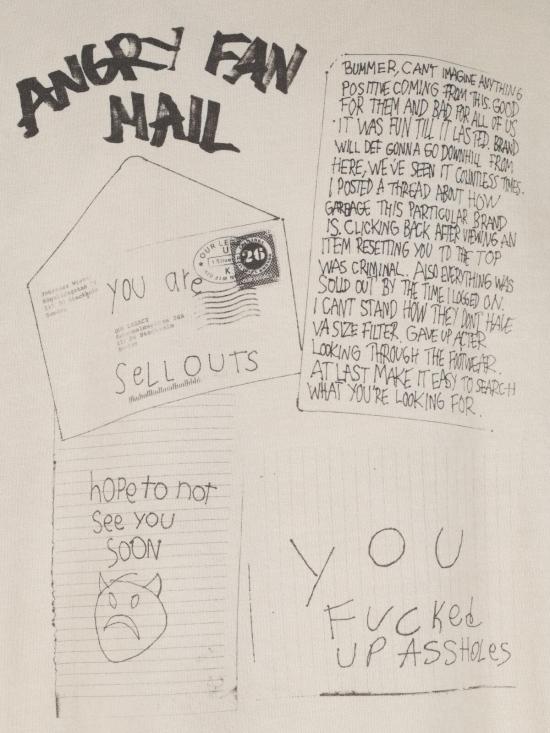 ANGRY FAN
MAIL
BUMMER, CAN'T IMAGINE ANYTHING
POSITIVE COMING FROM THIS. GOOD
FOR THEM AND BAD FOR ALL OF US
IT WAS FUN TILL IT LASTED. BRAND
WILL DEF GONNA GO DOWNHILL FROM
HERE, WE'VE SEEN IT COUNTLESS TIMES.
I POSTED A THREAD ABOUT HOW
GARBAGE THIS PARTICULAR BRAND
IS. CLICKING BACK AFTER VIEWING AN
ITEM RESETTING YOU TO THE TOP
WAS CRIMINAL. ALSO EVERYTHING WAS
SOLD OUT BY THE TIME I LOGGED ON.
I CANT STAND HOW THEY DON'T HAVE
VA SIZE FILTER. GAVE UP AFTER
LOOKING THROUGH THE FOOTWEAR.
AT LAST MAKE IT EASY TO SEARCH
WHAT YOU'RE LOOKING FOR.
OUR LE
26
YOU are
SELLOUTS
hope to not
See you
SOON
YOU
FUCKed
UP ASSHOLES